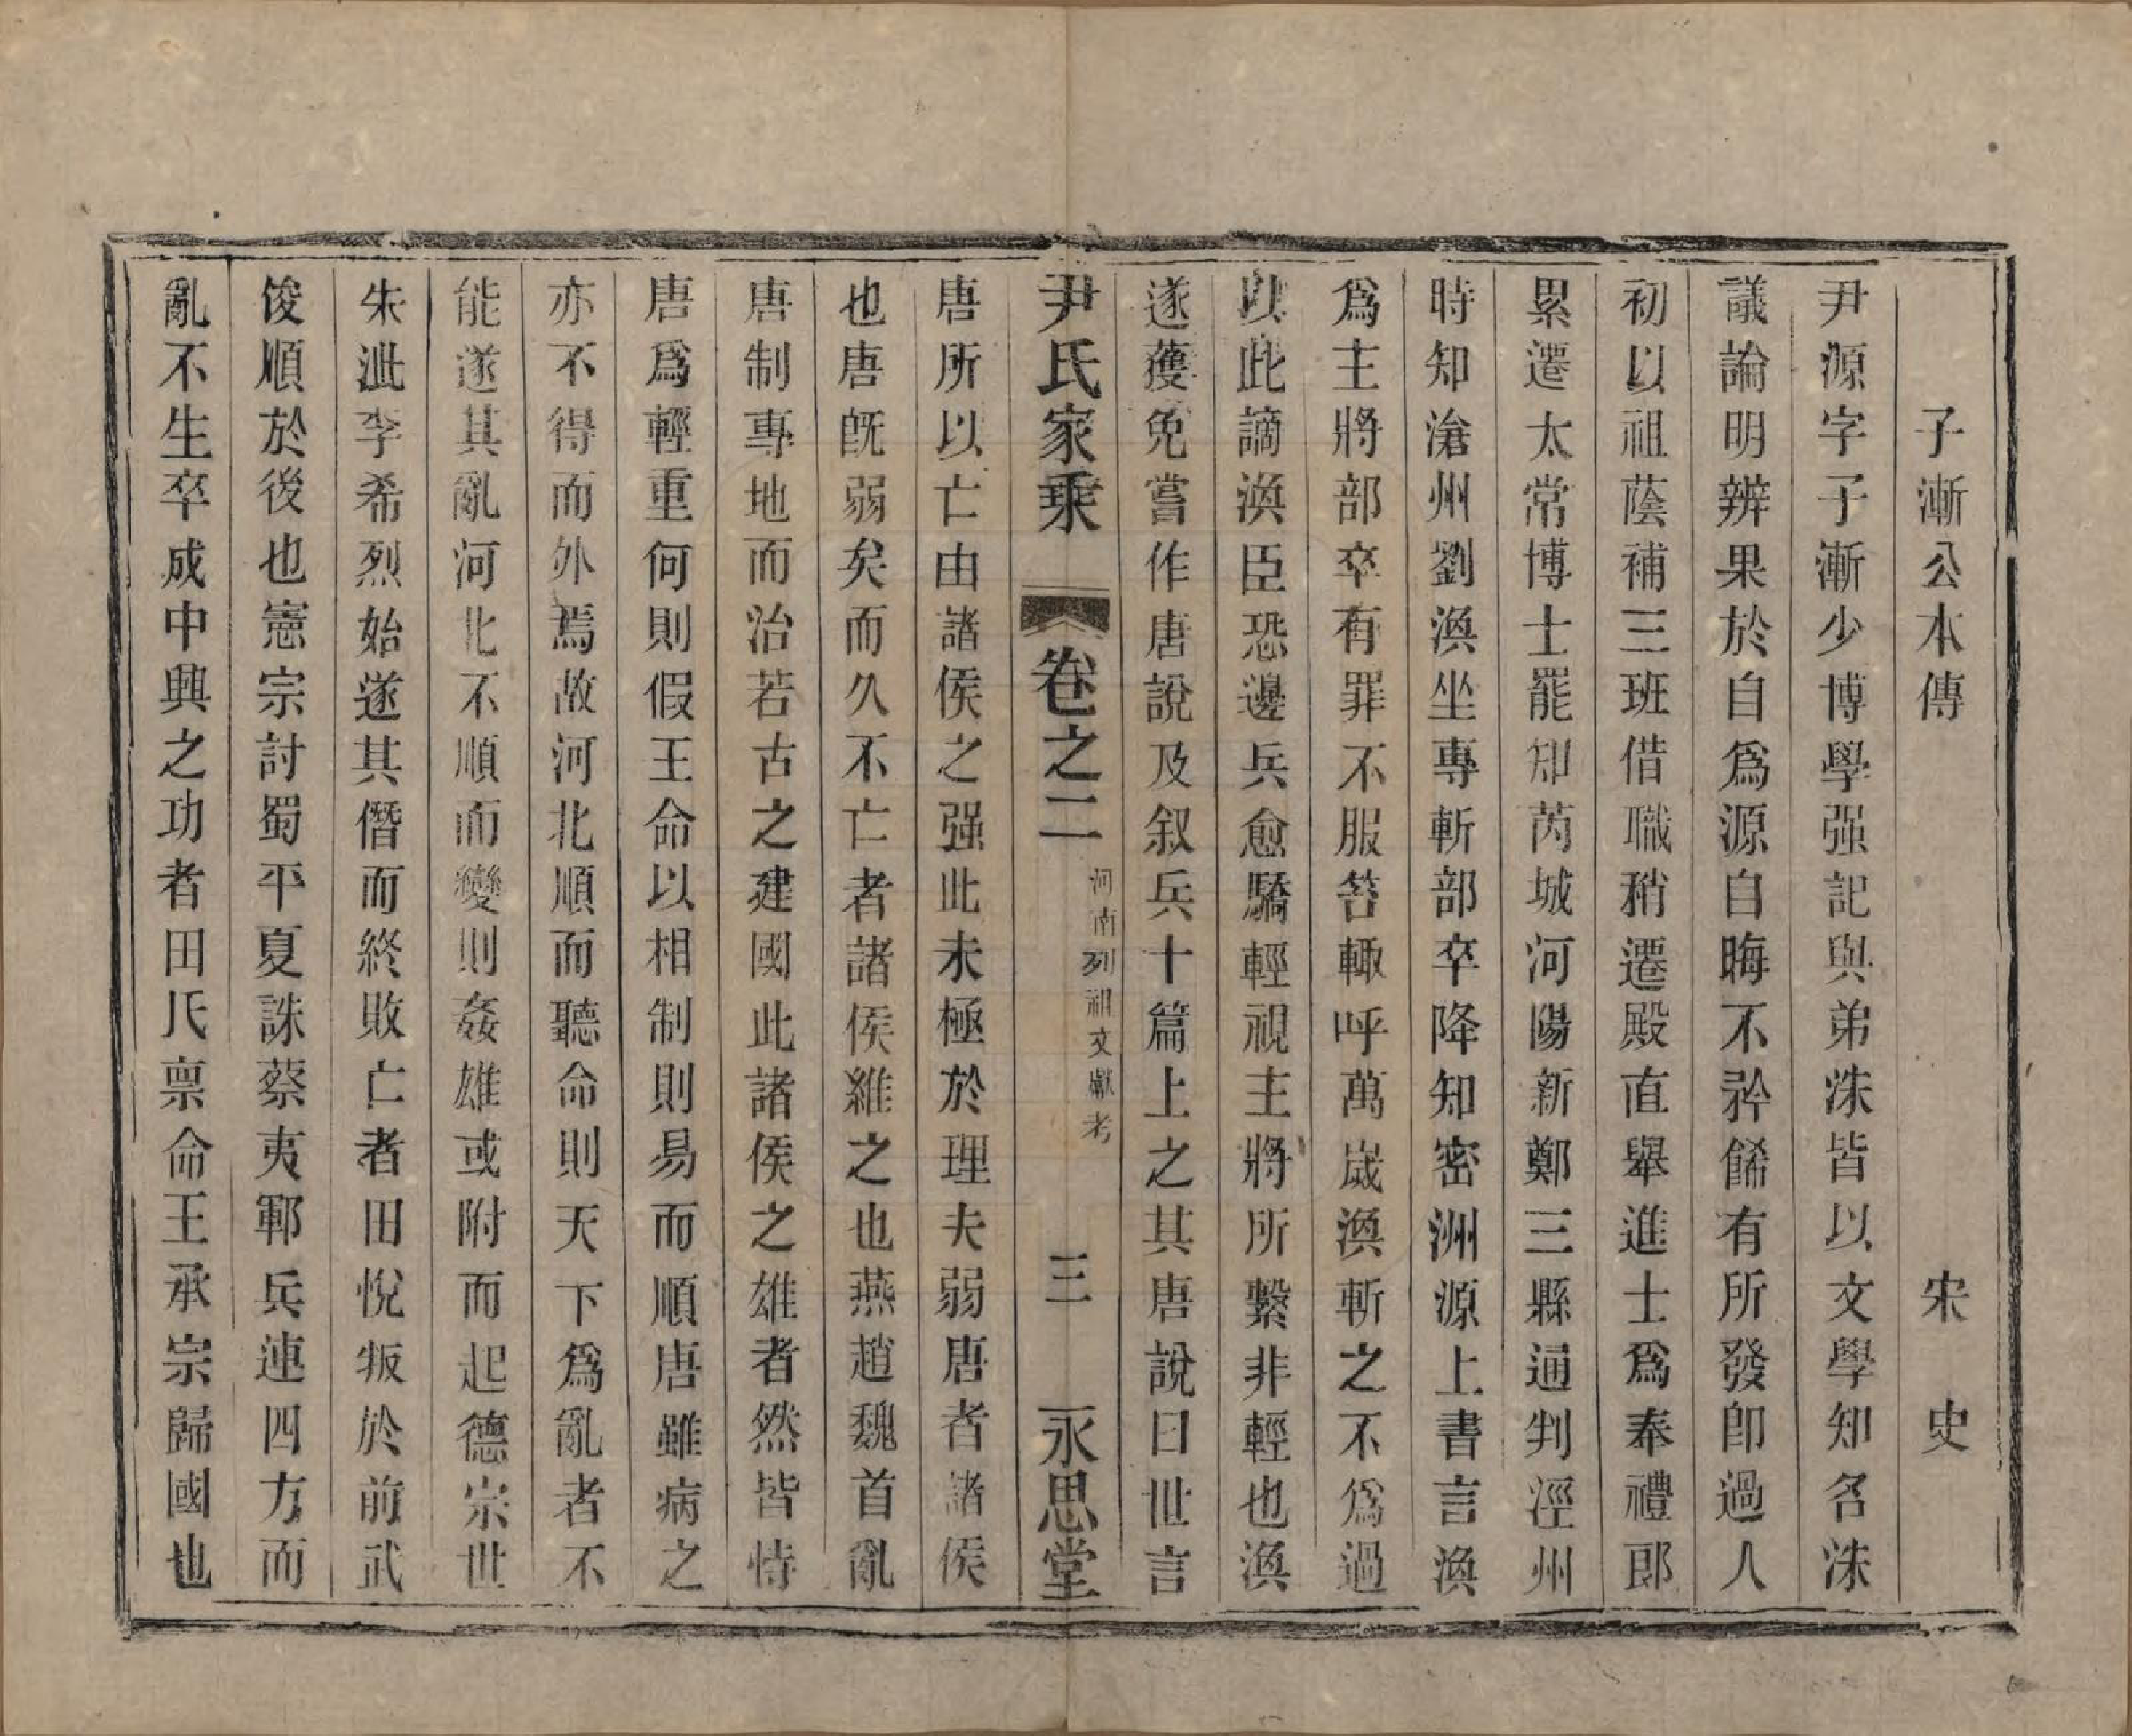 子漸公本傳 宋史
尹源字子漸少博學强記與弟洙皆以文學知名洙
議論明辨果於自爲源自晦不矜餙有所發卽過人
初以祖蔭補三班借職稍遷殿直舉進士爲奉禮郎
累遷太常博士罷知芮城河陽新鄭三縣通判涇州
時知滄州劉渙坐專斬部卒降知密洲源上書言渙
爲主將部卒有罪不服笞輙呼萬歲渙斬之不爲過
以此謫渙臣恐邊兵愈驕輕視主將所繫非輕也渙
遂獲免嘗作唐說及叙兵十篇上之其唐說曰世言
尹氏家乘 卷之二 河南列祖文獻考 三 永思堂
唐所以亡由諸侯之强此未極於理夫弱唐者諸侯
也唐旣弱矣而久不亡者諸侯維之也燕趙魏首亂
唐制專地而治若古之建國此諸侯之雄者然皆恃
唐爲輕重何則假王命以相制則易而順唐雖病之
亦不得而外焉故河北順而聽命則天下爲亂者不
能遂其亂河北不順而變則姦雄或附而起德宗世
朱泚李希烈始遂其僭而終敗亡者田悅叛於前武
俊順於後也憲宗討蜀平夏誅蔡夷鄆兵連四方而
亂不生卒成中興之功者田氏禀命王承宗歸國也